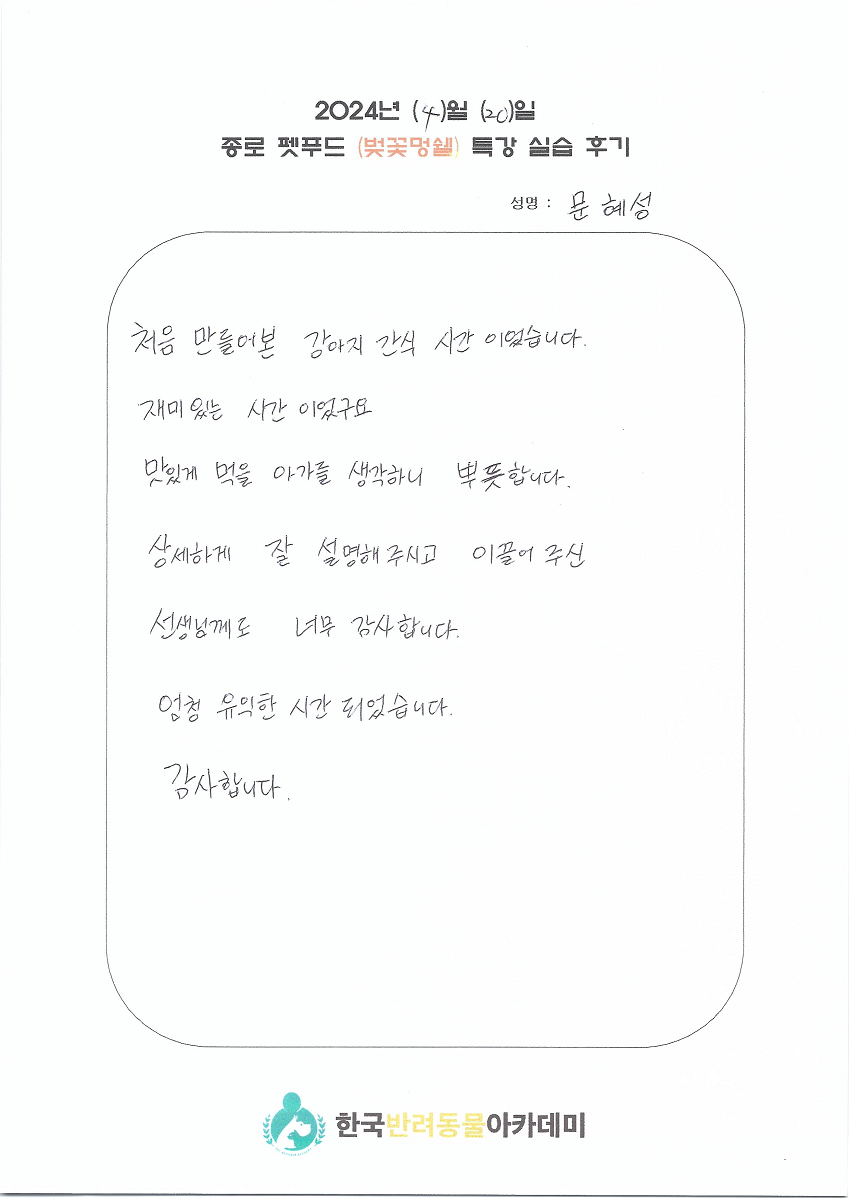 2024년 (4)월 (20)일
종로 펫푸드 (벚꽃멍쉘) 특강 실습 후기
성명 : 문혜성
처음 만들어본 강아지 간식 시간 이었습니다.
재미있는 시간 이었구요
맛있게 먹을 아가를 생각하니 뿌듯합니다.
상세하게 잘 설명해 주시고 이끌어 주신
선생님께도 너무 감사합니다.
엄청 유익한 시간 되었습니다.
감사합니다.
한국반려동물아카데미